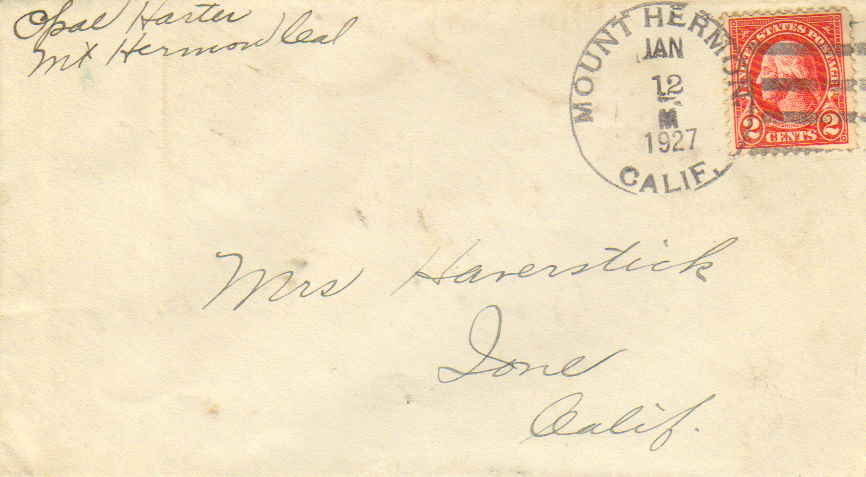 Opal Harter
Mt Hermon Cal
MOUNT HERMON
JAN
12
M
1927
CALIF.
UNITED STATES POSTAGE
2 CENTS 2
Mrs Haverstick
Ione
Calif.